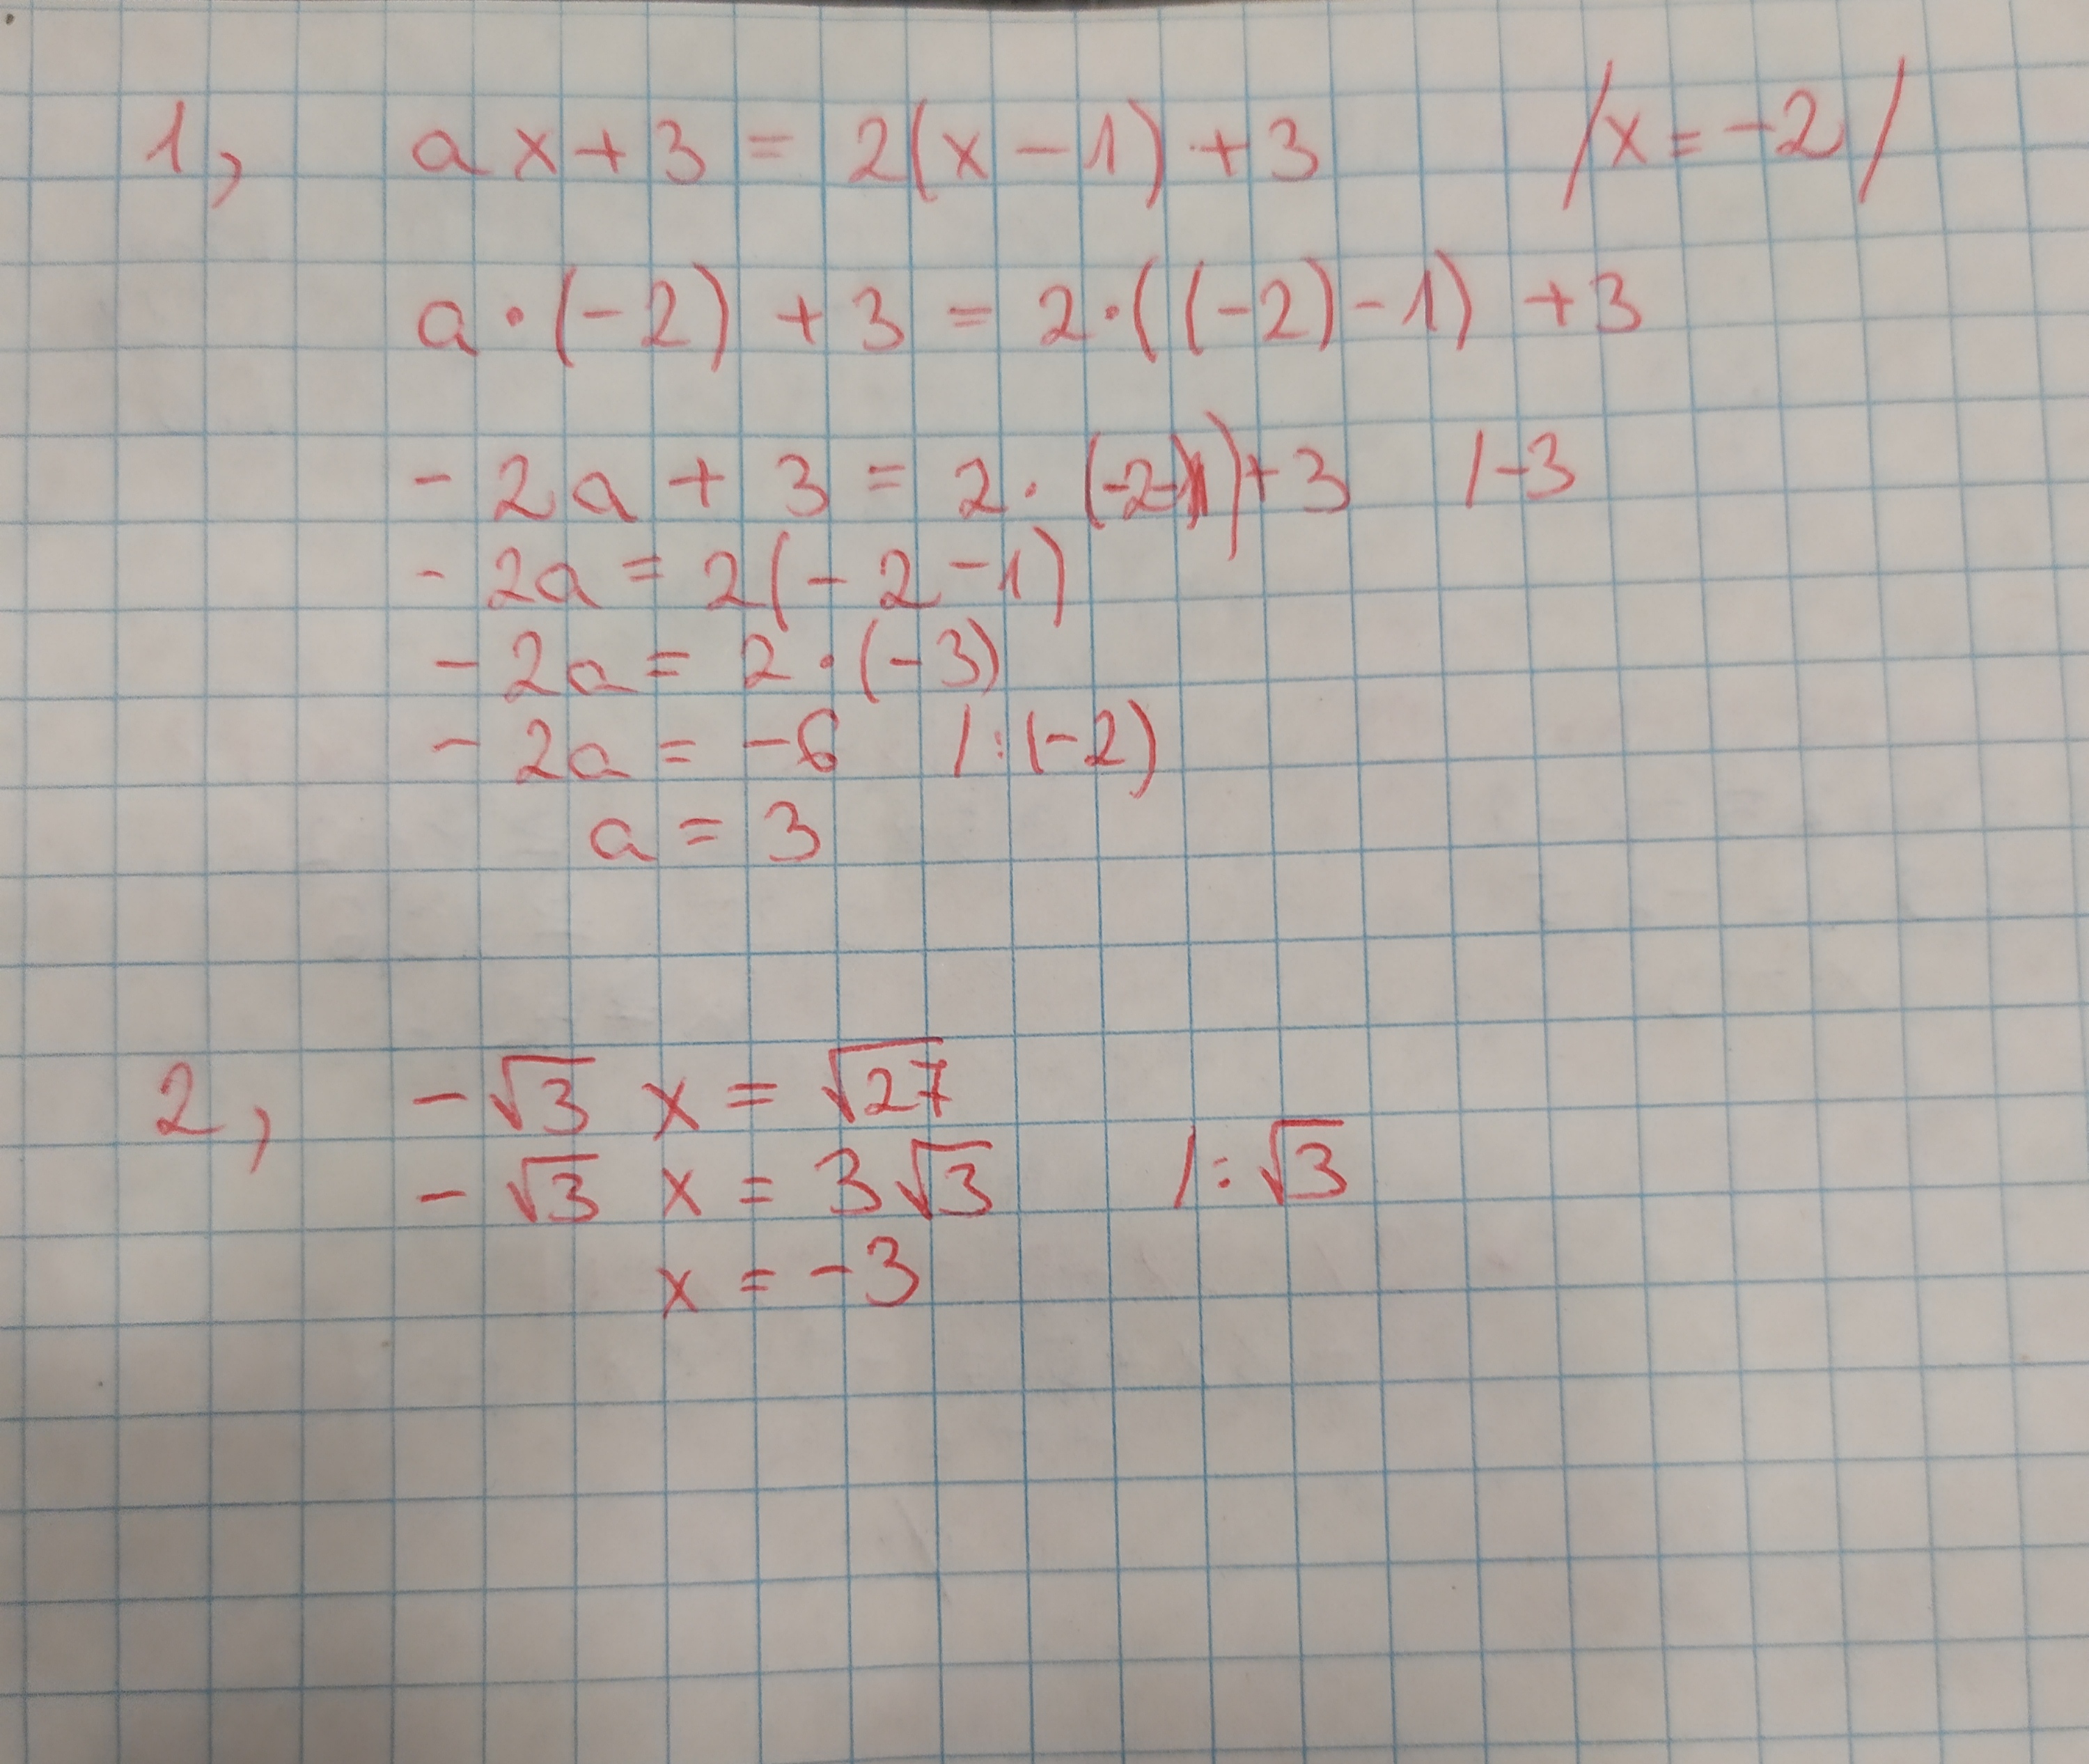 1, ax+3 = 2(x-1)+3 /x=-2/
a·(-2)+3 = 2·((-2)-1)+3
-2a+3 = 2·(-2-1)+3 /-3
-2a = 2(-2-1)
-2a = 2·(-3)
-2a = -6 /:(-2)
a = 3
2, -√3 x = √27
-√3 x = 3√3 /:√3
x = -3